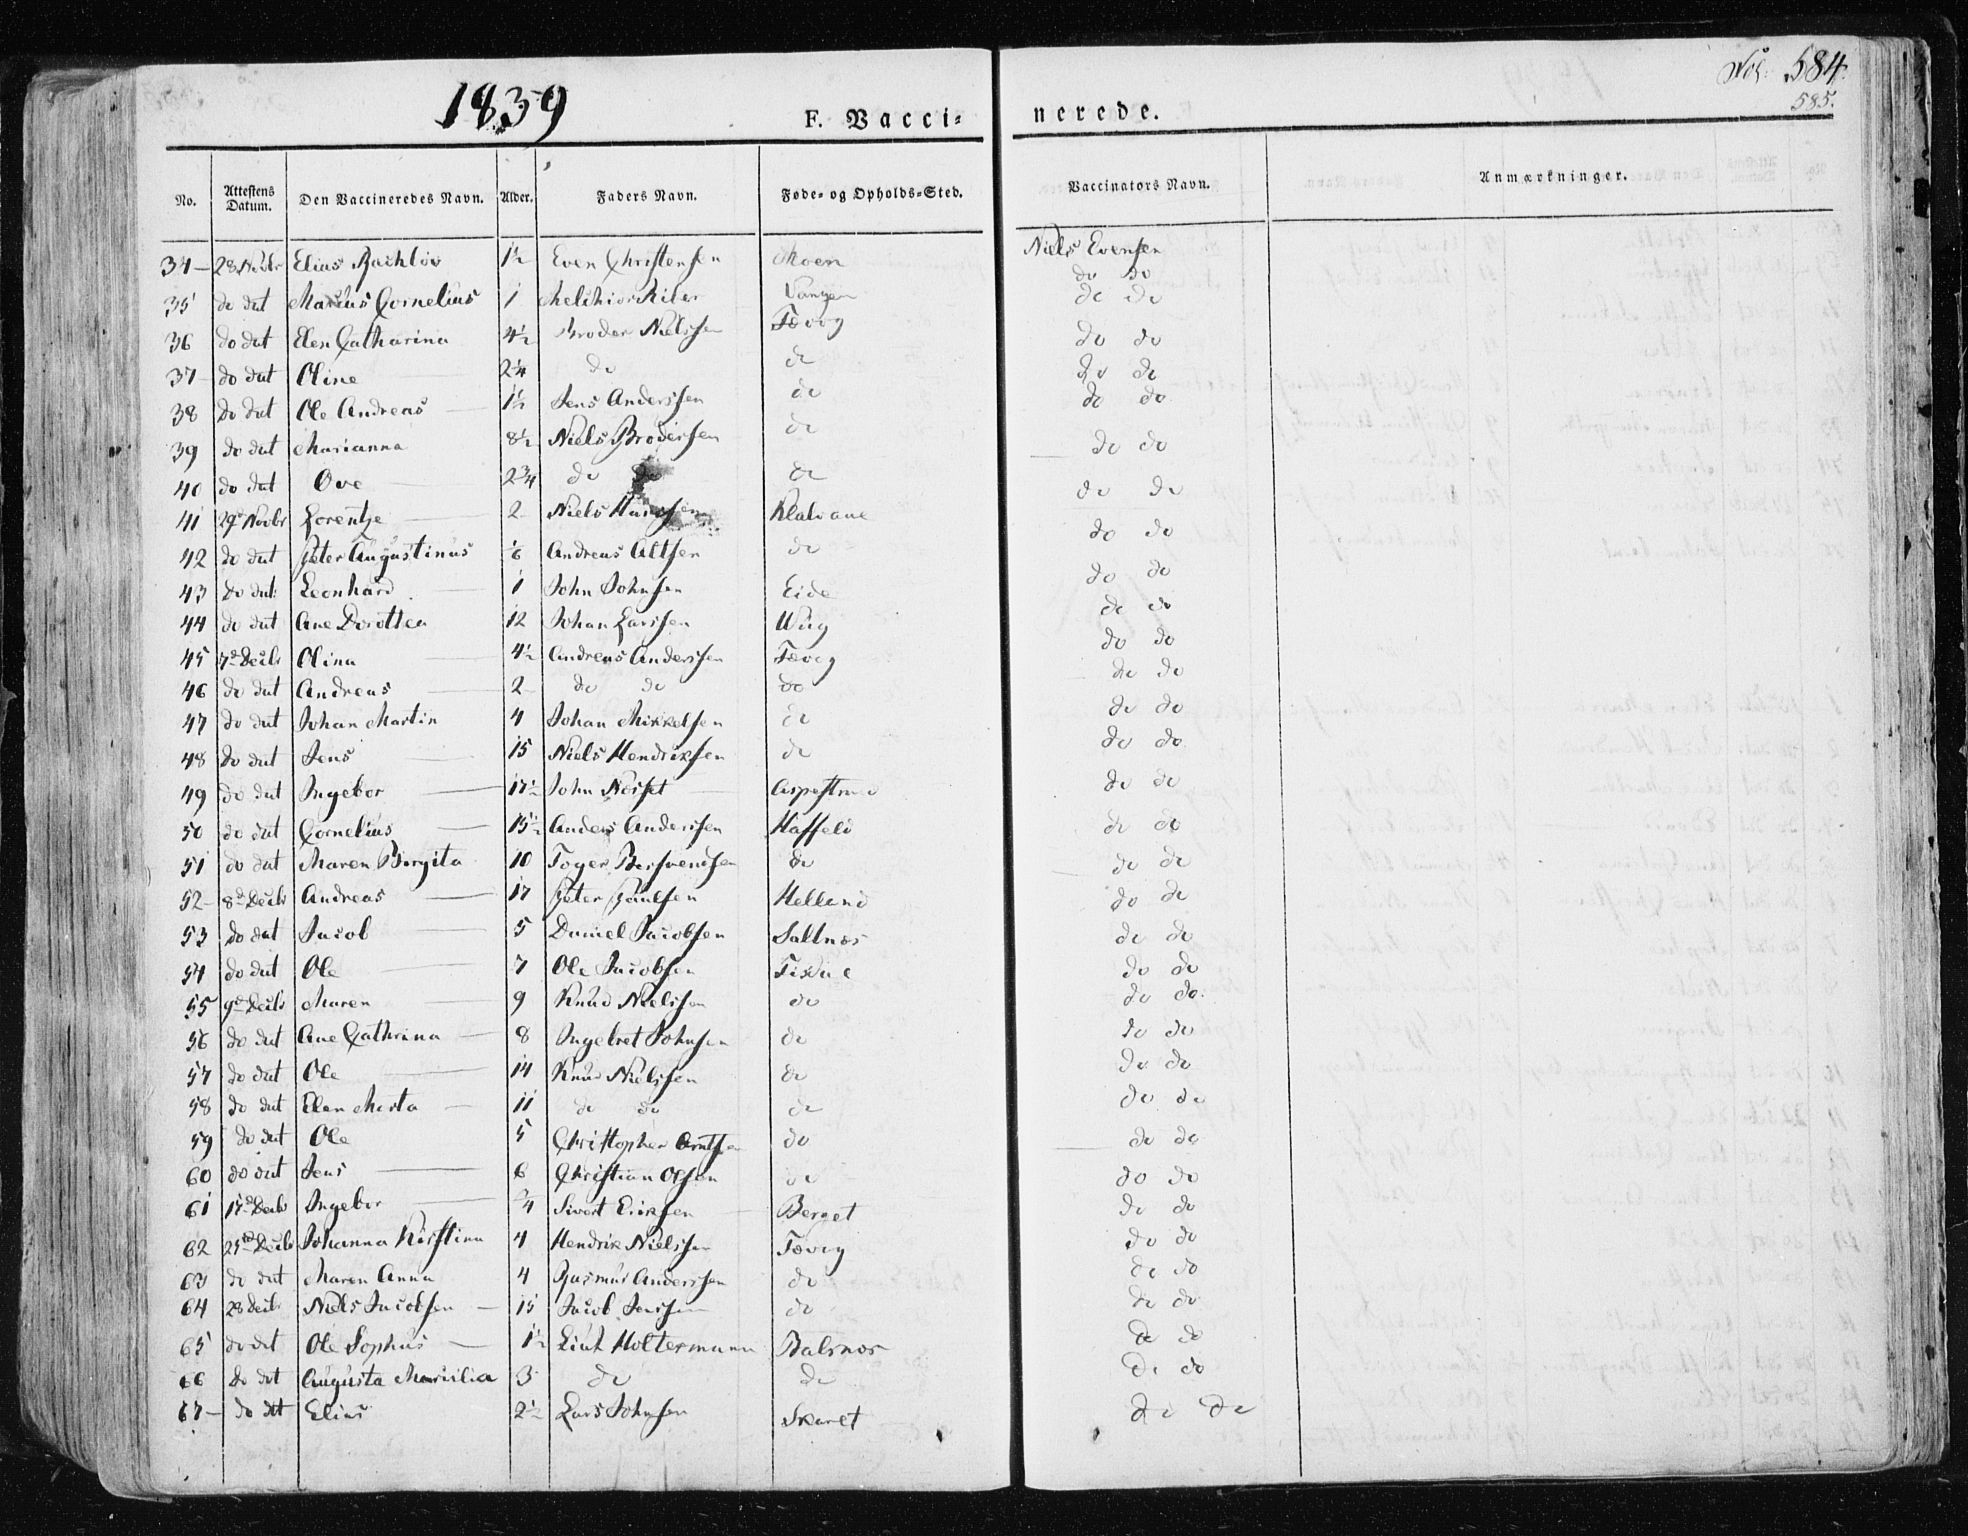 1839
Fol: 584.
585.
F. Vacci= nerede.
No. Attestens Datum. Den Vaccineredes Navn. Alder. Faders Navn. Føde- og Opholds-Sted. Vaccinators Navn. Anmærkninger.
34 28 Novbr Elias 1½ Even Christensen Moen Niels Evensen
35 do dat Marius Cornelius 1 Melchior Vangen do do
36 do dat Elen Catharina 4½ Broder Nielssen Tøvig do do
37 do dat Oline 2¼ do do do do
38 do dat Ole Andreas 1½ Jens Anderssen do do do
39 do dat Marianna 8½ Niels Broderssen do do do
40 do dat Ove 2¾ do do do do do
41 29d Novbr Lorentze 2 Niels Klatvane do do
42 do dat Peter Augustinus ⅙ Andreas do do do
43 do dat Leonhard 1 John Johnsen Eide do do
44 do dat Ane Dorottea 12 Johan Larssen do do
45 7d Decbr Olina 4½ Andreas Anderssen Tøvig do do
46 do dat Andreas 2 do do do do do
47 do dat Johan Martin 4 Johan Mikkelsen do do do
48 do dat Jens 15 Niels Hendriksen do do do
49 do dat Ingebor 17½ John do do
50 do dat Cornelius 15½ Anders Anderssen do do
51 do dat Maren Birgita 10 do do do
52 8d Decbr Andreas 17 Peter Paulsen Helland do do
53 do dat Jacob 5 Daniel Jacobsen Saltnes do do
54 do dat Ole 7 Ole Jacobsen do do
55 9d Decbr Maren 9 Knud Nielssen do do do
56 do dat Ane Cathrina 8 Ingebret Johnsen do do do
57 do dat Ole 14 Knud Nielssen do do do
58 do dat Elen Marta 11 do do do do do
59 do dat Ole 5 Christopher Arntsen do do do
60 do dat Jens 6 Christian Olsen do do do
61 17d Decbr Ingebor ¾ Sivert Eriksen Berget do do
62 Decbr Johanna Kirstina 4 Hendrik Nielssen Tøvig do do
63 do dat Maren Anna 4 Rasmus Anderssen do do do
64 28 Decbr Niels Jacobsen 15 Jacob Jenssen do do do
65 do dat Ole Sophus 1½ Liut Holtermann Balsnes do do
66 do dat Augusta 3 do do do do
67 do dat Elias 2½ Lars Johnsen Skaret do do